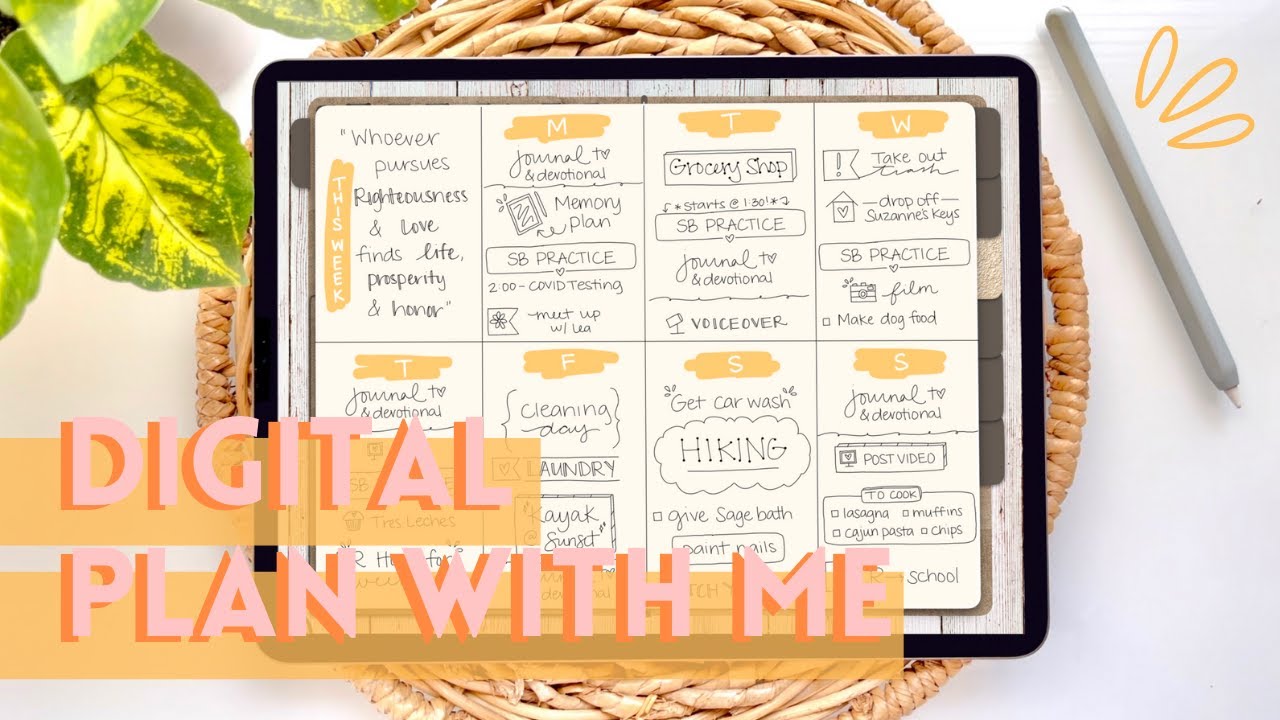 "Whoever
pursues
Righteousness
& Love
finds life,
prosperity
& honor"
THIS WEEK
M
journal
& devotional
Memory
Plan
SB PRACTICE
2:00 - COVID Testing
meet up
w/ Lea
T
Grocery Shop
*starts @ 1:30!*
SB PRACTICE
journal
& devotional
VOICEOVER
W
! Take out
trash
drop off
Suzanne's keys
SB PRACTICE
film
Make dog food
T
journal
& devotional
SB PRACTICE
Tres Leches
F
Cleaning
day
LAUNDRY
"Kayak
@
Sunset"
devotional
S
"Get car wash"
HIKING
give Sage bath
paint nails
S
journal
& devotional
POST VIDEO
TO COOK
lasagna muffins
cajun pasta chips
school
DIGITAL
PLAN WITH ME